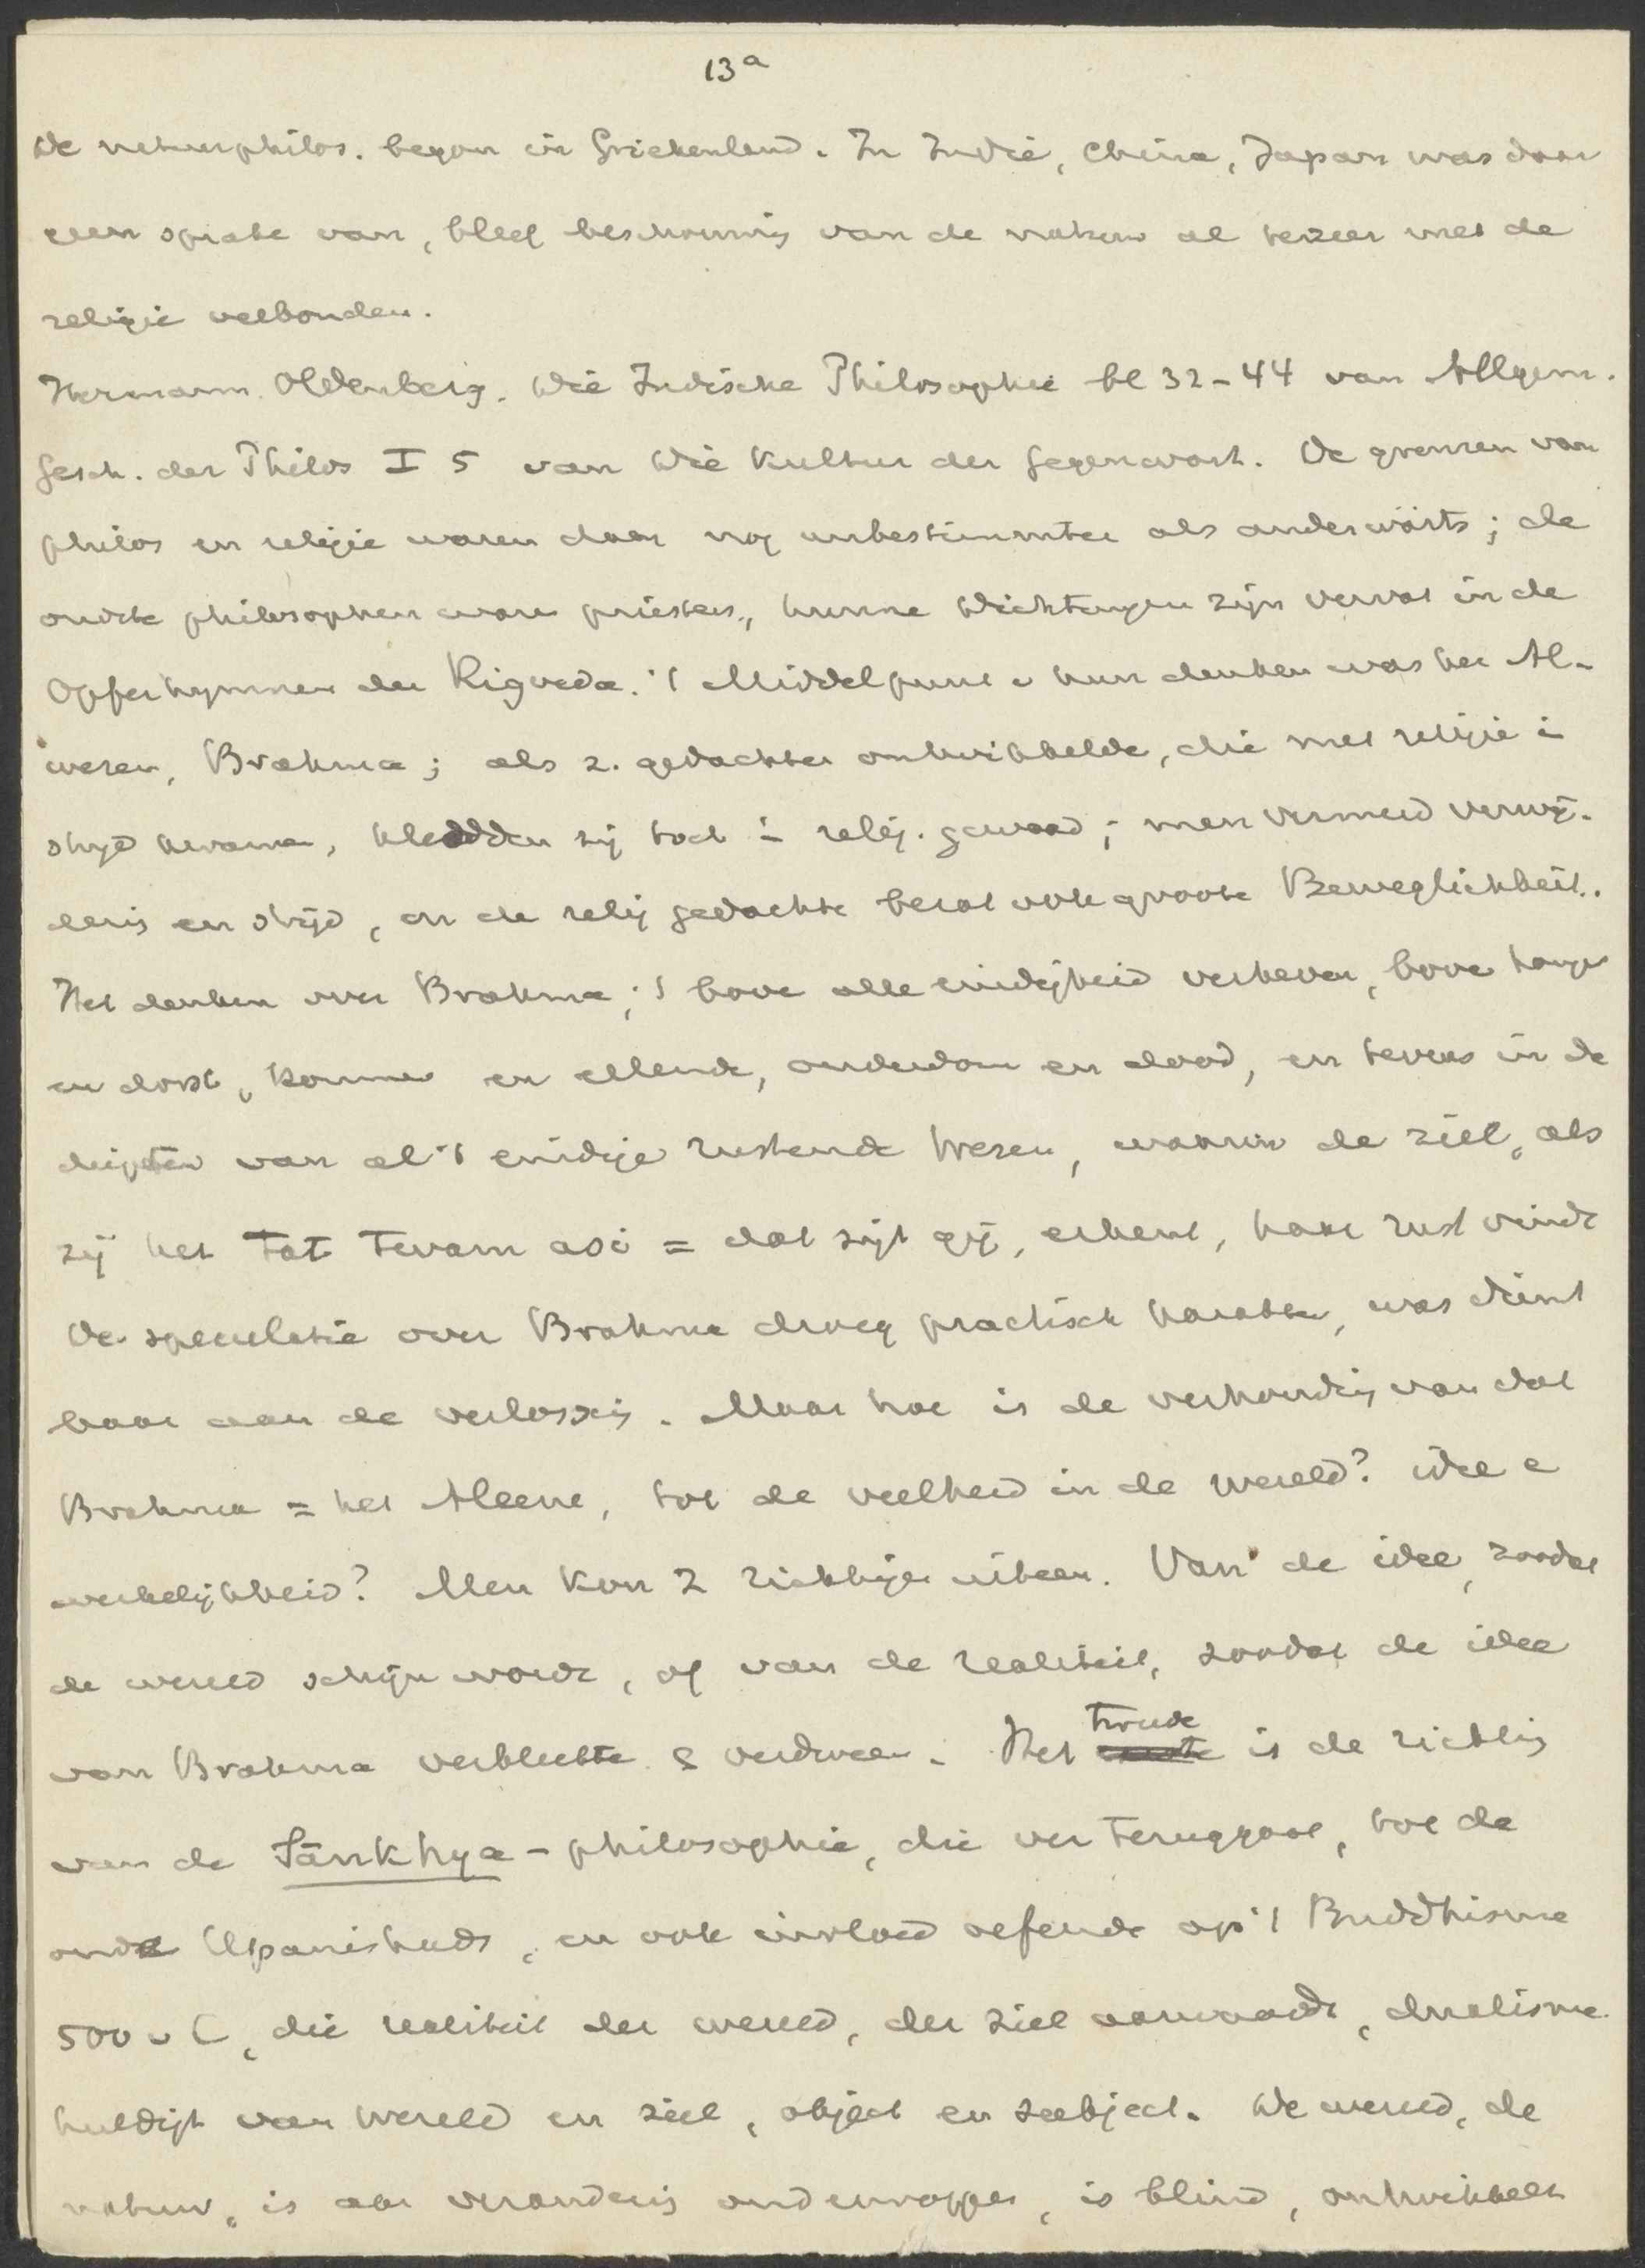 13a
De natuurphilos. begon in Griekenland. In Indië, China, Japan was daar
geen sprake van, bleef beschouwing van de natuur al te zeer met de
religie verbonden.
Hermann Oldenberg. Die Indische Philosophie bl 32-44 van Allgem.
Gesch. der Philos I 5 van Die Kultur der Gegenwart. De grenzen van
philos en religie waren daar nog unbestimmter als anderwärts; de
oudste philosophen waren priesters, hunne Dichtungen zijn vervat in de
Opferhymnen der Rigveda. 't Middelpunt v hun denken was het Al-
wezen, Brahma; als z. gedachten ontwikkelde, die met religie in
strijd kwamen, kleedden zij toch in relig. gewaad; men vermeed verwij-
dering en strijd, en de relig gedachte bezat ook groote Beweglichkeit.
Het denken over Brahma, 't boven alle eindigheid verheven, boven honger
en dorst, kommer en ellende, ouderdom en dood, en tevens in de
diepten van al 't eindige rustende Wezen, waarin de ziel, als
zij het Tat Tvam asi = dat zijt gij, erkent, haar rust vindt
De speculatie over Brahma droeg practisch karakter, was dienst
baar aan de verlossing. Maar hoe is de verhouding van dat
Brahma = het Aleene, tot de veelheid in de wereld? idee e
werkelijkheid? Men kon 2 richtingen uitgaan. Van de idee, zoodat
de wereld schijn wordt, of van de realiteit, zoodat de idee
van Brahma verbleekte & verdween. Het tweede is de richting
van de Sānkhya-philosophie, die ver teruggaat, tot de
oude Upanishads, en ook invloed oefende op 't Buddhisme
500 v C, die realiteit der wereld, der ziel aanvaardt, dualisme
huldigt van wereld en ziel, object en subject. De wereld, de
natuur, is aan verandering onderworpen, is blind, ontwikkelt